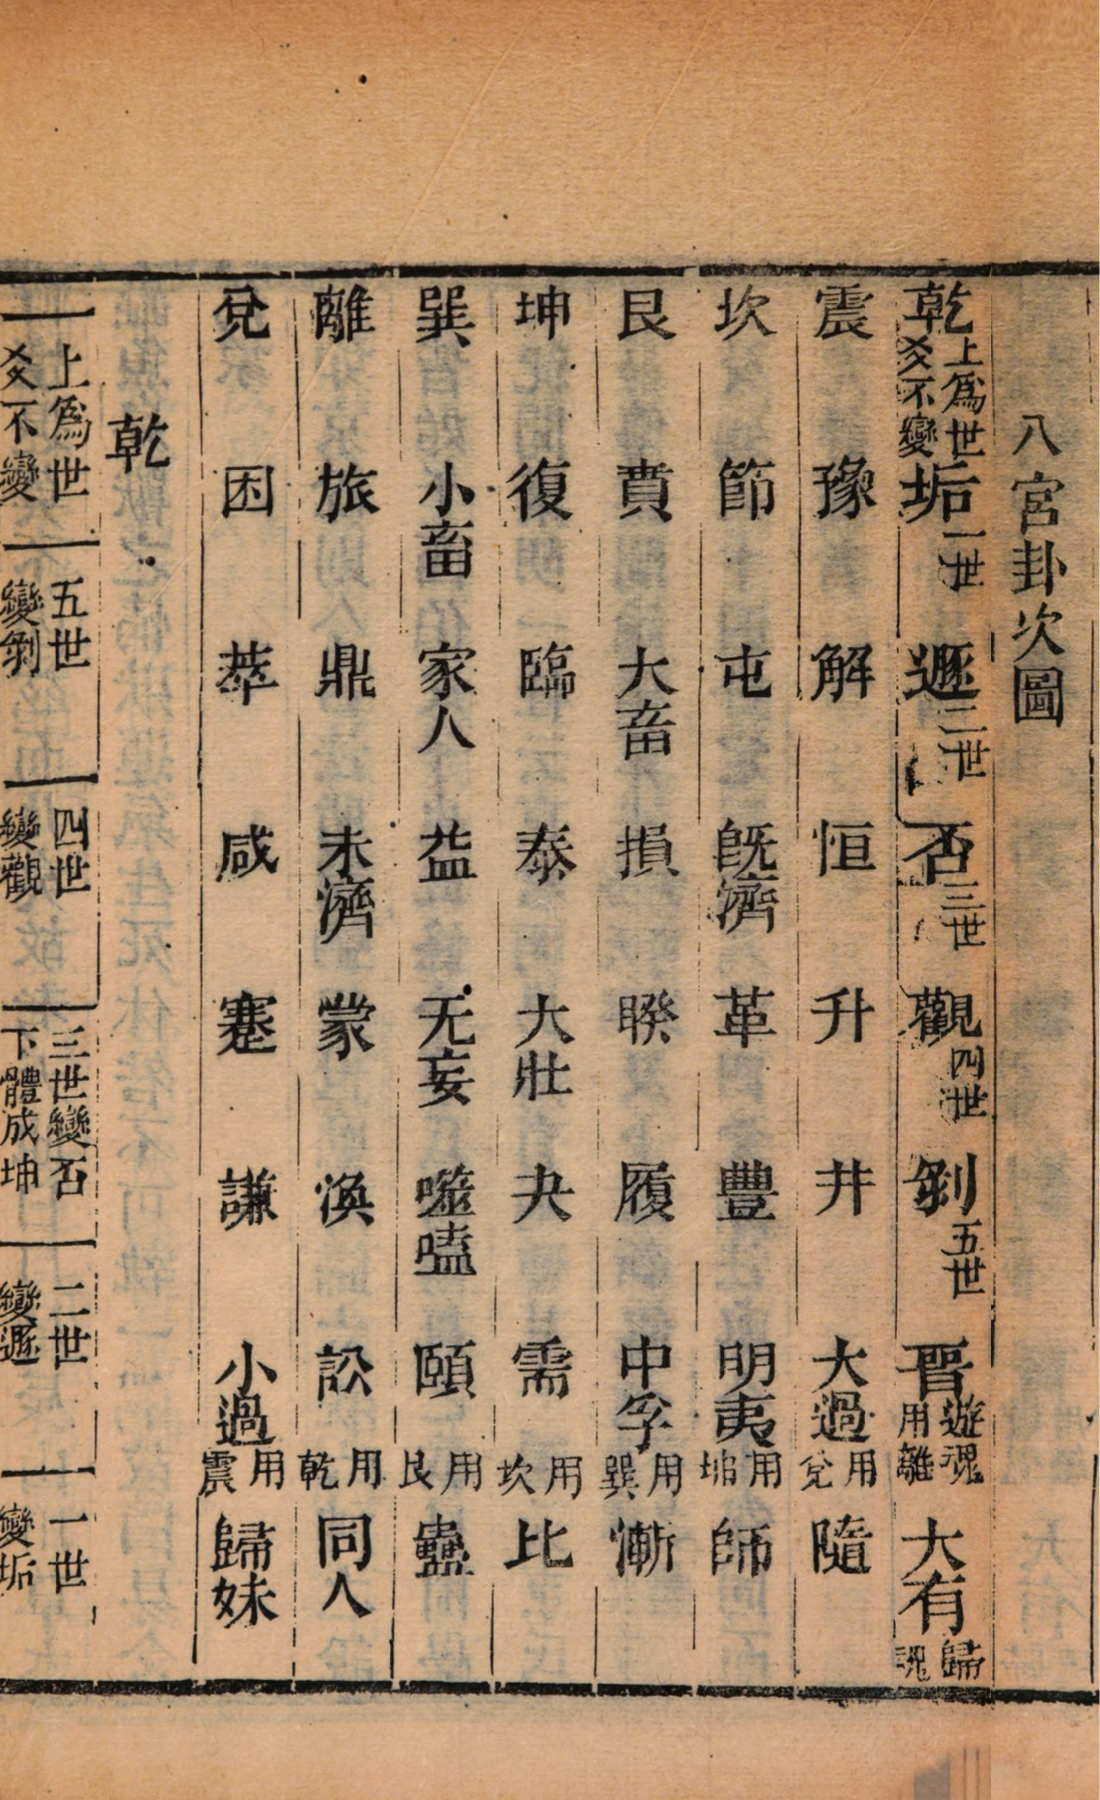 八宮卦次圖
乾上爲世爻不變垢一世遯二世否三世觀四世剝五世晋遊魂用離大有歸魂
震豫解恒升井大過用兌隨
坎節屯旣濟革豐明夷用坤師
艮賁大畜損睽履中孚用巽漸
坤復臨泰大壯夬需用坎比
巽小畜家人益无妄噬嗑頤用艮蠱
離旅鼎未濟蒙渙訟用乾同人
兌困萃咸蹇謙小過用震歸妹
乾
上爲世爻不變
五世變剝
四世變觀
三世變否下體成坤
二世變遯
一世變垢